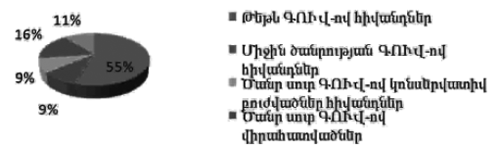 11%
16%
55%
9%
9%
Թեթև ԳՈՒՎ-ով հիվանդներ
Միջին ծանրության ԳՈՒՎ-ով
հիվանդներ
Ծանր սուր ԳՈՒՎ-ով կոնսերվատիվ
բուժվածներ հիվանդներ
Ծանր սուր ԳՈՒՎ-ով
վիրահատվածներ